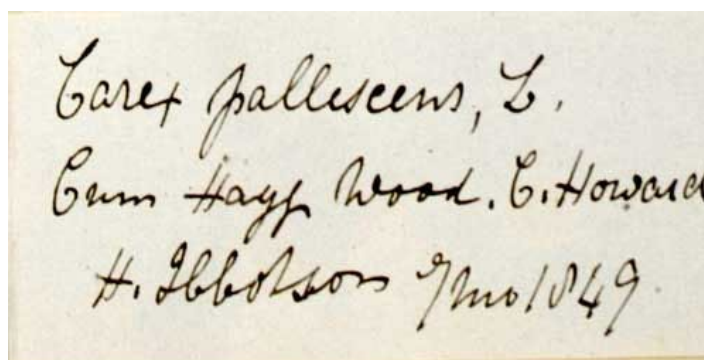 Carex pallescens, L.
Cum Hagg Wood. C. Howard
H. Ibbotson 7mo 1849